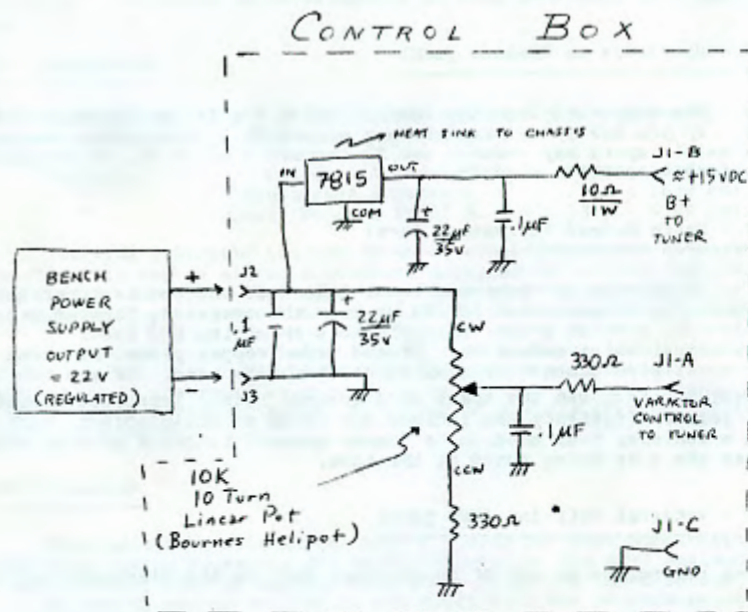 CONTROL BOX
HEAT SINK TO CHASSIS
IN
7815
OUT
COM
22µF
35V
.1µF
10Ω
1W
J1-B
≈+15VDC
B+
TO
TUNER
BENCH
POWER
SUPPLY
OUTPUT
≈ 22V
(REGULATED)
+
-
J2
J3
.1
µF
+
22µF
35V
CW
CCW
330Ω
J1-A
VARACTOR
CONTROL
TO TUNER
.1µF
10K
10 Turn
Linear Pot
(Bournes Helipot)
330Ω
J1-C
GND